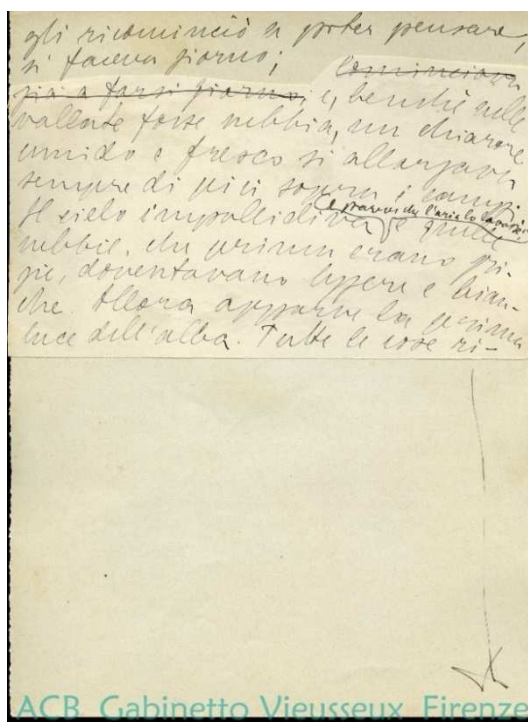 gli ricominciò a poter pensare,
si faceva giorno;
Cominciava
già a farsi giorno, e, benché nelle
vallate fosse nebbia, un chiarore
umido e fresco si allargava
sempre di più sopra i campi.
Il cielo impallidiva e quelle
e pareva che l'aria lo
nebbie, che prima erano gri-
gie, doventavano leggere e bian-
che. Allora apparve la prima
luce dell'alba. Tutte le cose ri-
ACB Gabinetto Vieusseux Firenze